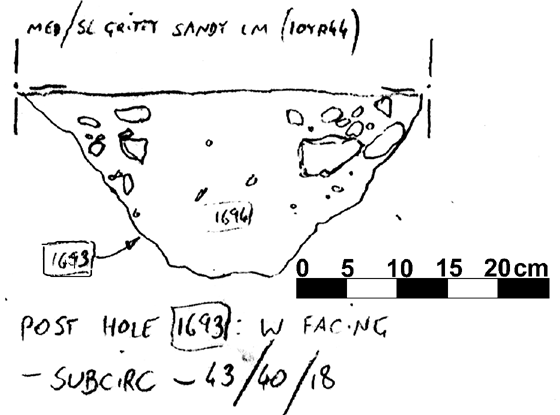 MED/SL GRITTY SANDY LM (10YR44)
1694
1693
0 5 10 15 20cm
POST HOLE 1693: W FACING
- SUBCIRC - 43/40/18